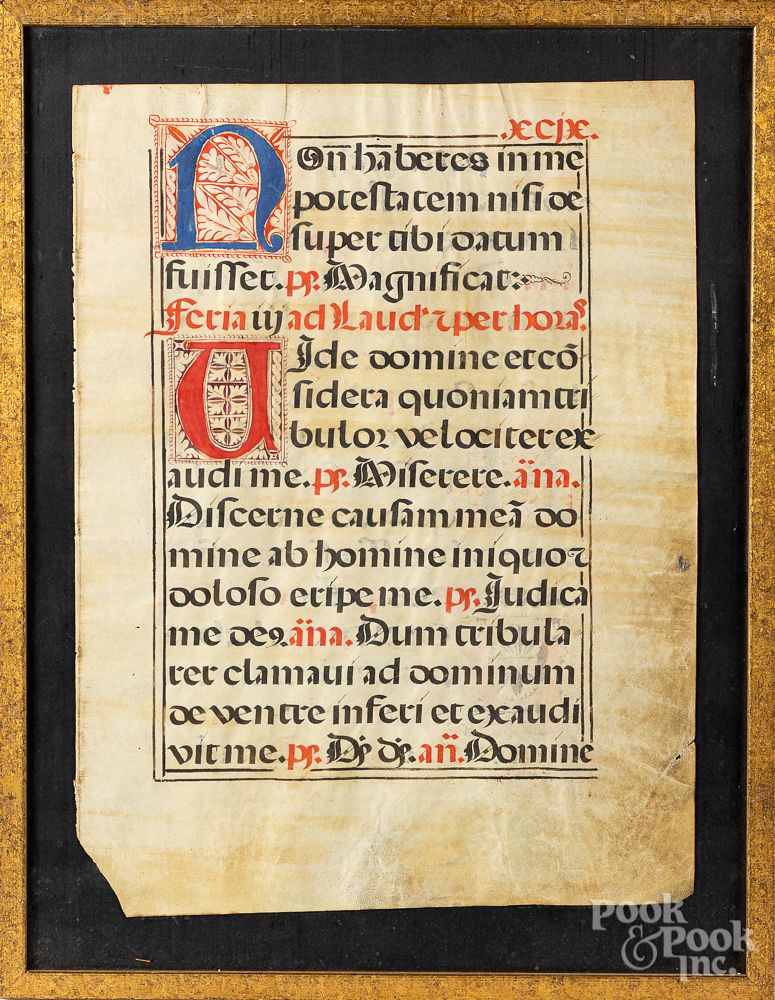 xcjx.
Non̄ hāberes in me
potestatem nisi de
super tibi datum
fuisset. ps. Magnificat:
Feria iij ad Laud̄ ⁊ per horas.
Vide domine et cō
sidera quoniam tri
bulor velociter ex
audi me. ps. Miserere. an̄a.
Discerne causam meā do
mine ab homine iniquo ⁊
doloso eripe me. ps. Judica
me deꝰ an̄a. Dum tribula
rer clamavi ad dominum
de ventre inferi et exaudi
vit me. ps. Ds̄ ds̄. an̄. Domine
Pook
& Pook
Inc.